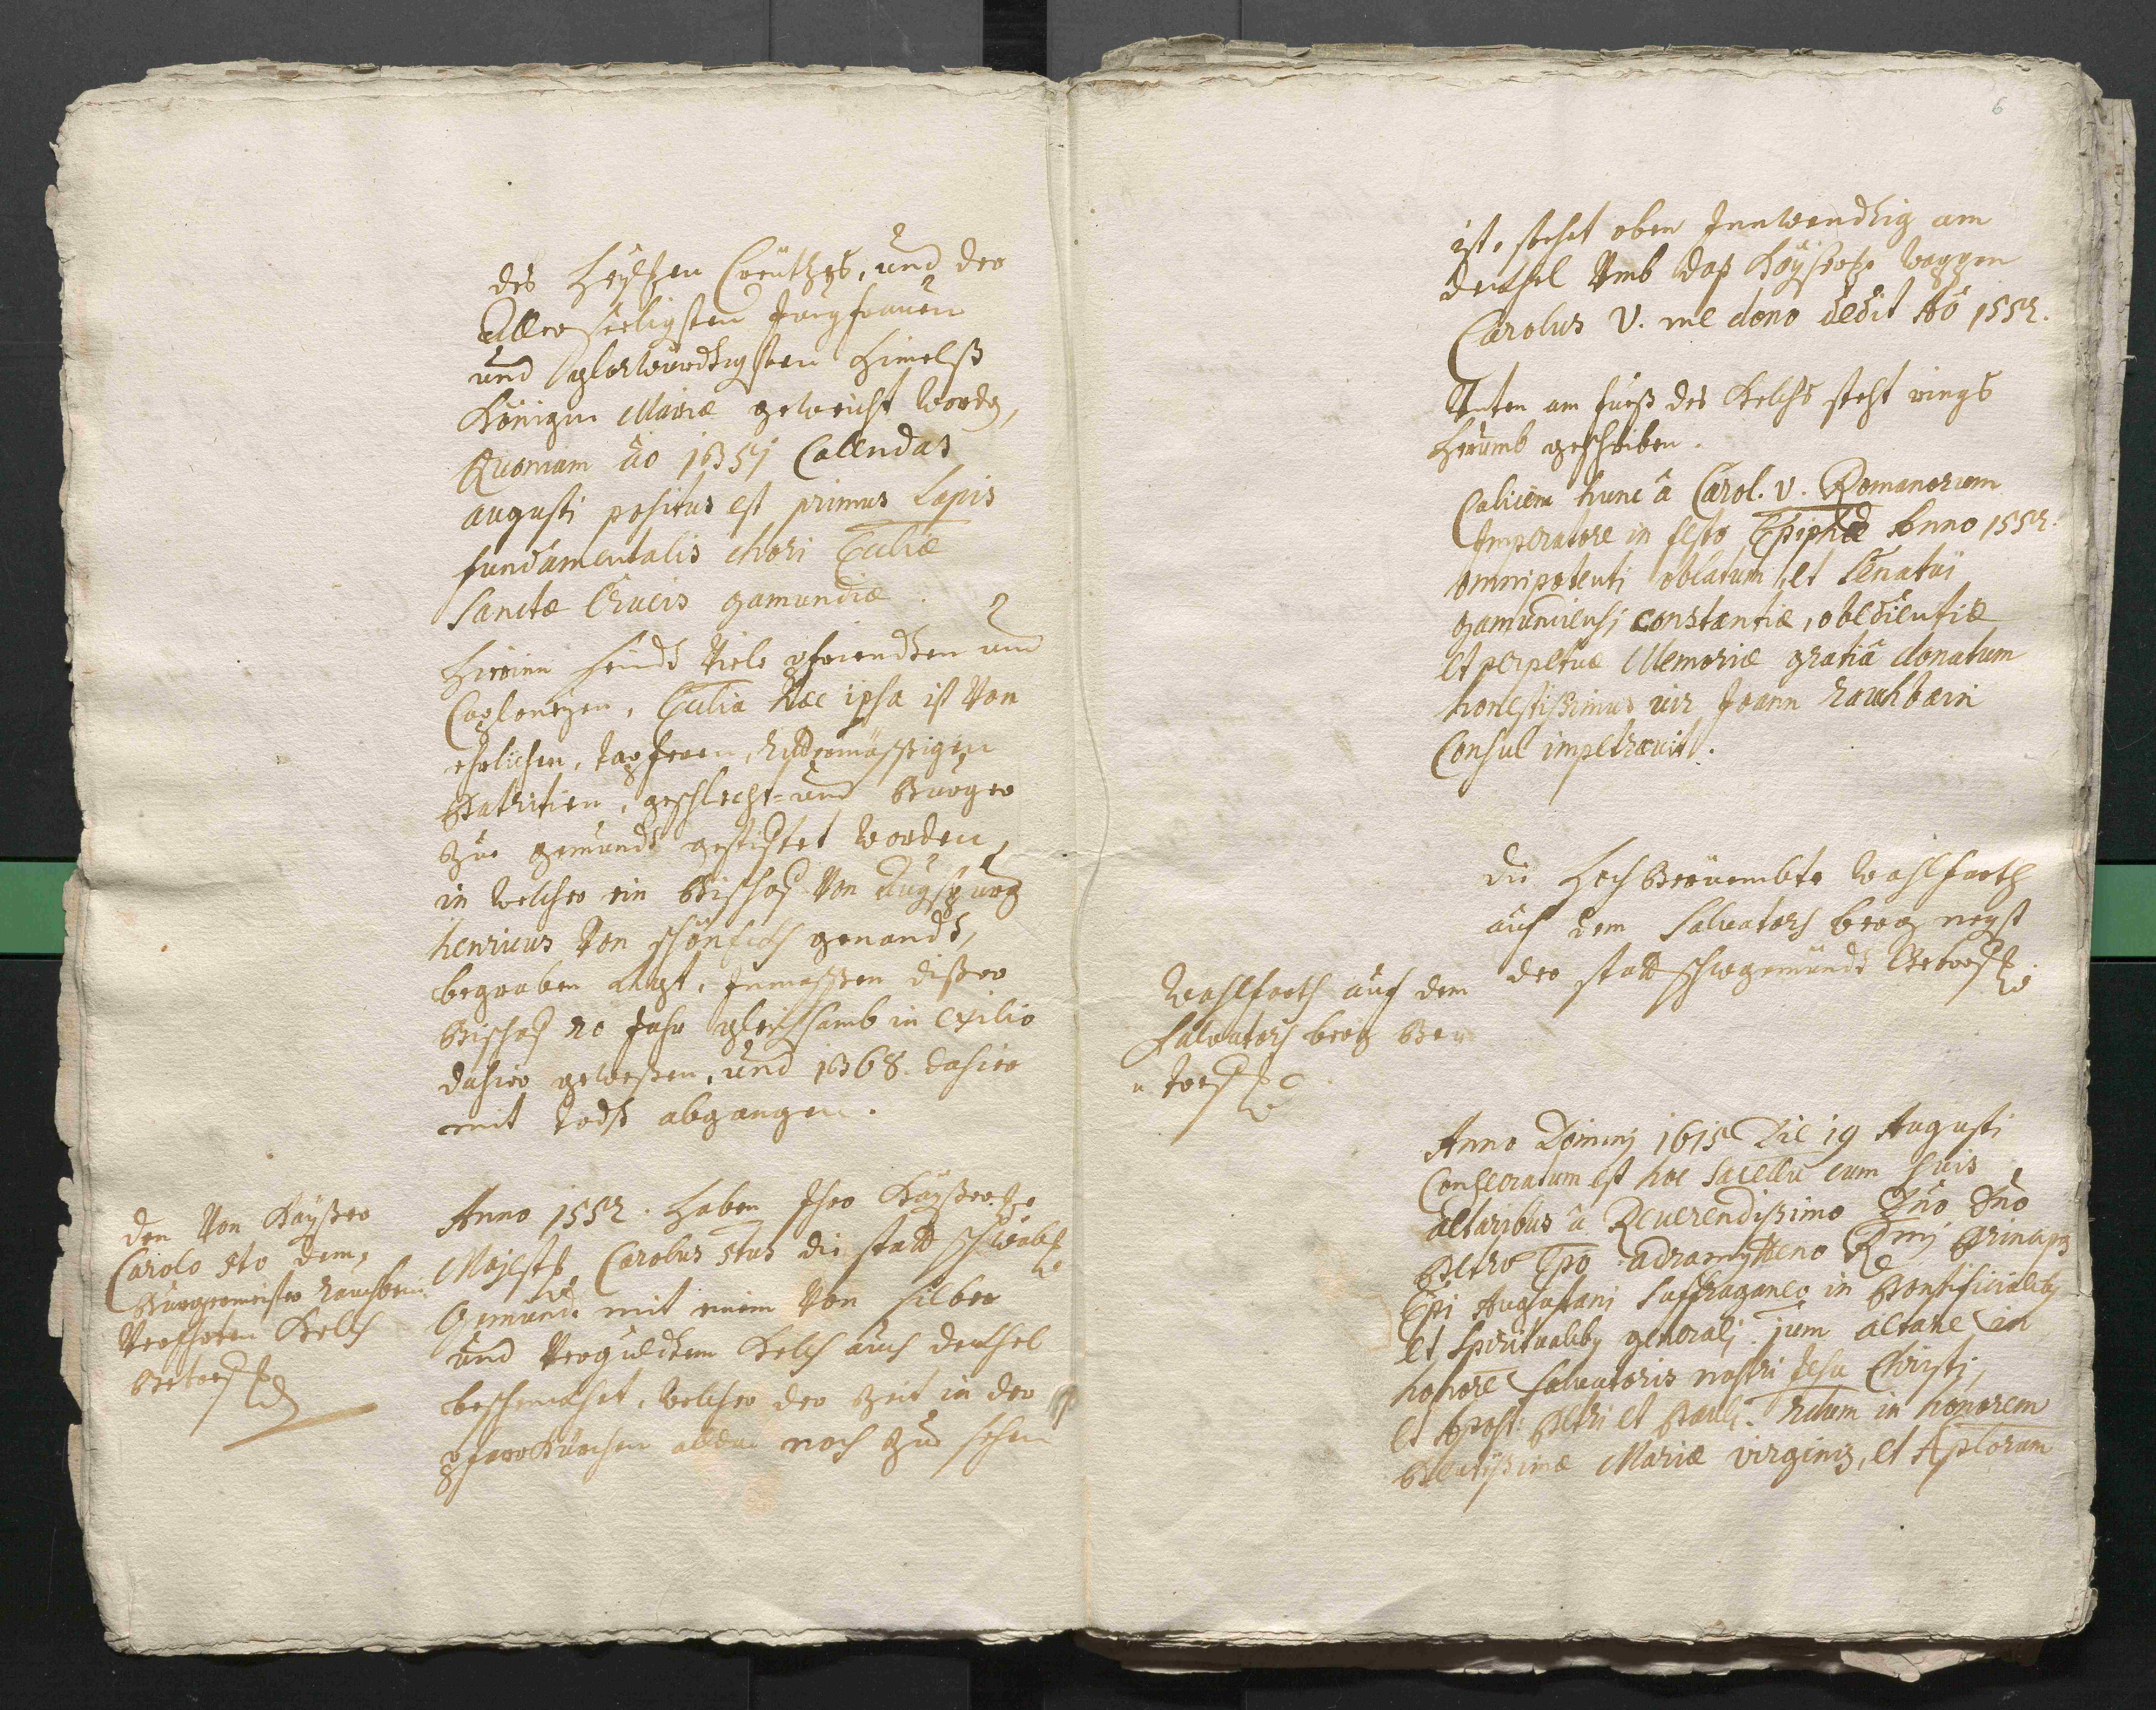 des Heyligen Creützes, und der
Allerseeligsten Jungfrauen
und glorwürdigsten Himelß
Königin Mariæ geweicht worden,
Quoniam aõ 1351 Callendas
augusti positus est primus Lapis
fundamentalis chori Eccliæ
Sanctæ Crucis gamundiæ.
Hierinn seindt viele pfriendten und
Caploneyen, Ecclia hæc ipsa ist von
ehrlichen, tapferen, Rittermässigen
Patritien, geschlecht- und Burger
zue gemündt gestifftet worden,
in welcher ein Bischof von Augspurg
henricus von schönfeldt genandt,
begraben ligt, Inmassen dißer
Bischof 20 Jahr gleichsamb in exilio
dahier geweßen, und 1368. dahier
mit todt abgangen.
den von Kayßer
Carolo 5to dem
Burgermeister Rauchbein
verehrten Kelch
Betref
Anno 1552. Haben Ihro Kayßerl.
Majestet Carolus 5tus die statt schwäbl.
Gemündt mit einem von silber
und verguldtem Kelch auch deckhel
beschenckhet, welcher der Zeit in der
pfarrKürchen allda noch zue sehen
6
ist, stehet oben Innwendtig am
deckhel umb daß Kayßerl. wappen
Carolus V. me dono dedit Aõ 1552.
Unten am fueß des Kelchs steht rings
herumb geschriben.
Calicem hunc â Carol. V. Romanorum
Imperatore in festo Epiphæ Anno 1552.
omnipotenti oblatum, et Senatui
gamundiensi constantiæ, obedientiæ
et perpetuæ Memoriæ gratiâ donatum
honestißimus vir Joann Rauchbein
Consul impetravit.
Die Hoch Berüembte Wahlfarth
auf dem Salvators berg negst
der statt schwgemündt Betref
Wahlfarth auf dem
Salvators berg Be
treff
Anno Dominj 1615 Die 19 Augusti
Consecratum est hoc Sacellũ cum suis
altaribus â Reverendißimo Dño Dño
Petro Epõ adramytteno Rmj Principis
Epi Augustani Suffraganeo in Pontificialib9
et Spiritualib9 generalj. 1um altare in
honore Salvatoris nostri Jesu Christj,
et Apost: Petri et Pauli. 2dum in honorem
Beatißimæ Mariæ virginis, et Aplorum